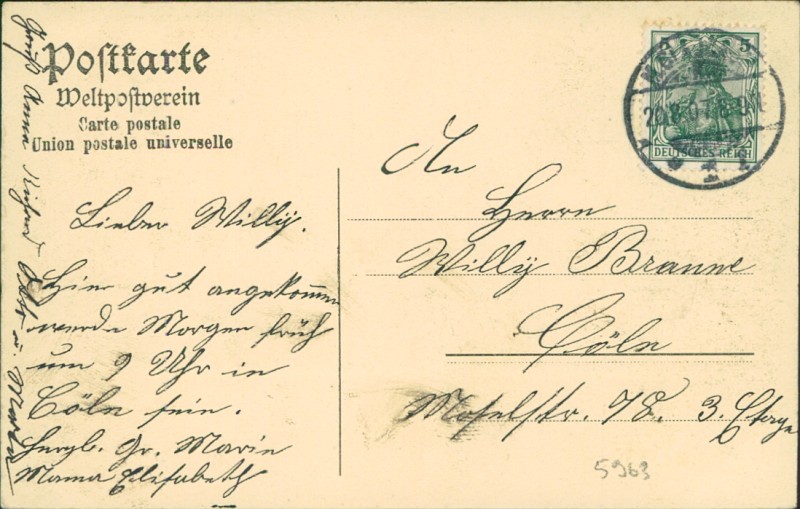 Postkarte
Weltpostverein
Carte postale
Union postale universelle
5 5
DEUTSCHES REICH
Lieber Willy.
Hier gut angekommen
werde Morgen früh
um 9 Uhr in
Cöln sein.
Herzl. Gr. Marie
Mama Elisabeth
Gruß Anna Richard
u. Maria
An
Herrn
Willy Braune
Cöln
Moselstr. 78. 3. Etage
5963